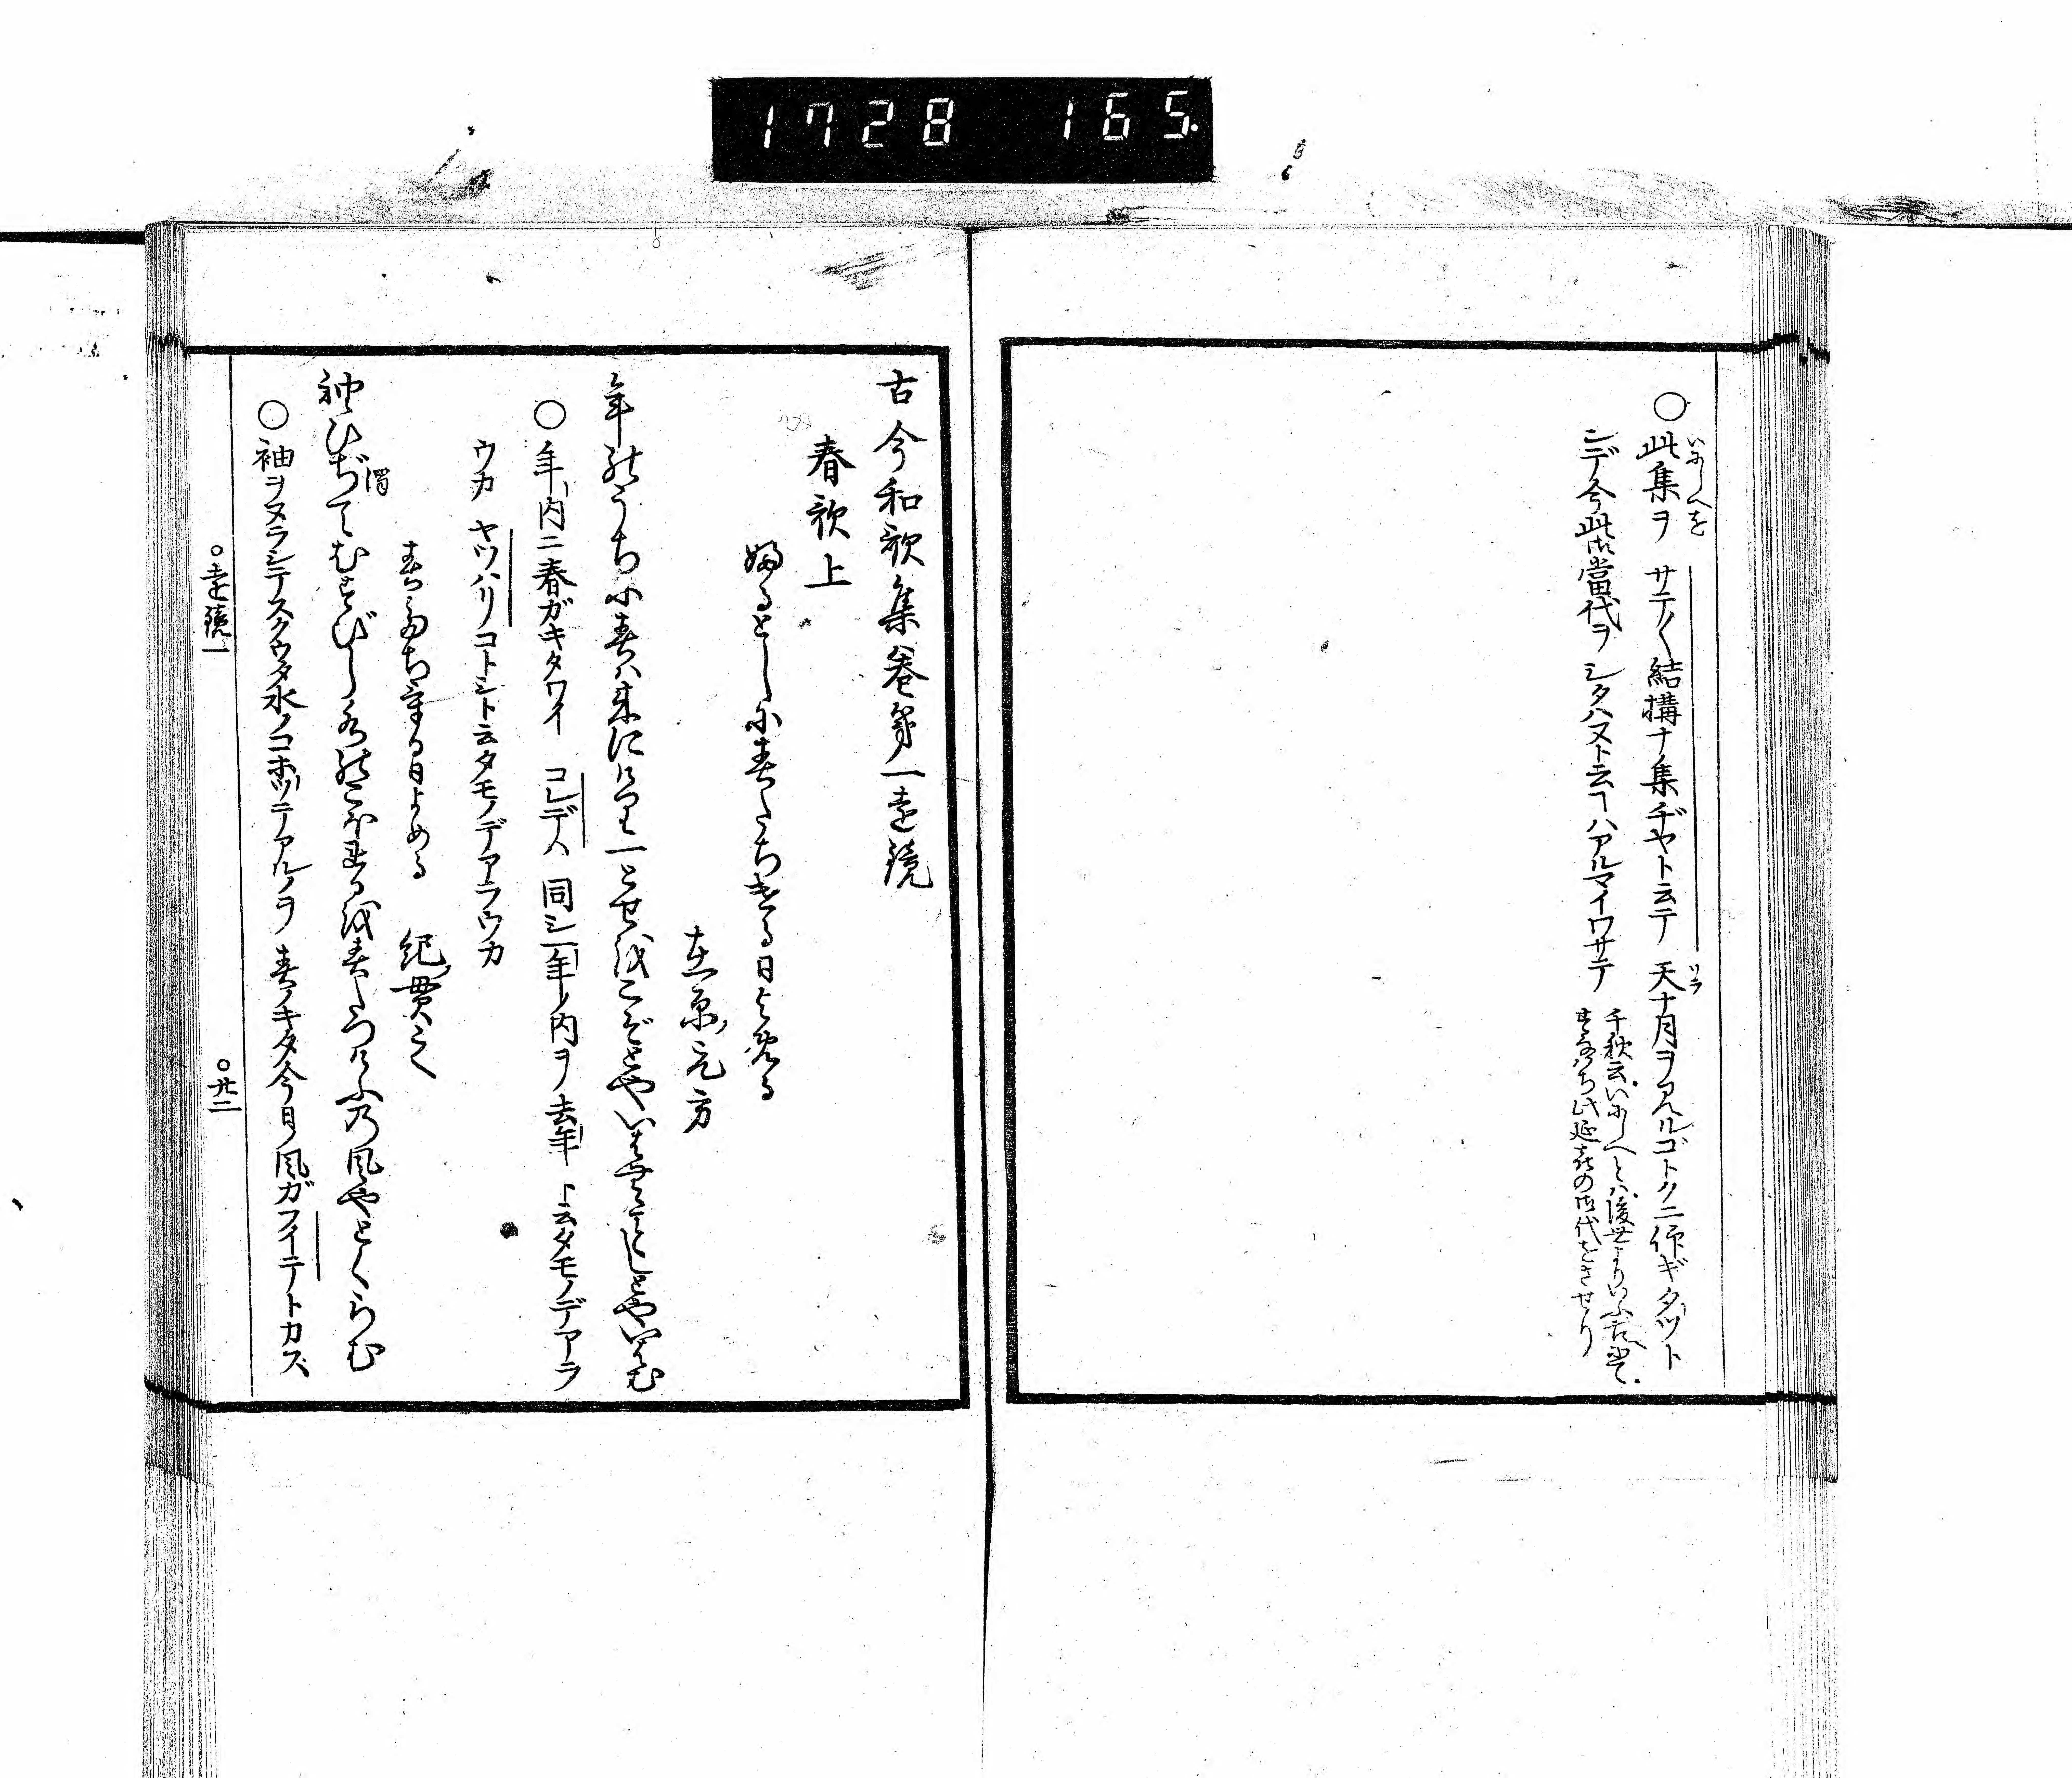 1728 165.
○此集ヲ サテ〳〵結構ナ集ヂヤト云テ 天ナ月ヲアルゴトクニ仰ギタツト
いにしへを
ソラ
ンデ今此御當代ヲ シタハヌト云ヿハアルマイワサテ
千秋云いにしへとは後世よりいふ古にて。
すなはち此延喜の御代をさせり
古今和歌集巻第一遠鏡
春歌上
ふるとしに春たちける日よめる
在原ノ元方
年のうちに春は来にけり一とせをこぞとやいはむことしとやいはむ
○年ノ内ニ春ガキタワイ コレデハ 同シ一年ノ内ヲ 去年 ト云タモノデアラ
ウカ ヤツハリコトシト云タモノデアラウカ
春たちける日よめる 紀ノ貫之
袖ひぢてむすびし水のこほれるを春たつけふの風やとくらむ
濁
○袖ヲヌラシテスクウタ水ノコホツテアルノヲ 春ノキタ今日ノ風ガフイテトカス
○遠鏡一 ○廿二